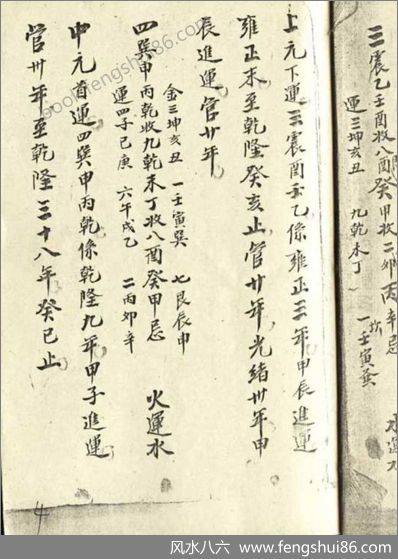 三震乙壬酉收八酉癸甲收二卯丙辛忌
運三坤亥丑 九乾未丁 一壬寅巽
上元下運三震酉壬乙係雍正三年甲辰進運
雍正末至乾隆癸亥止管廿年光緒卅年甲
辰進運管廿年
金三坤亥丑 一壬寅巽 七艮辰申
四巽甲丙乾收九乾未丁收八酉癸甲忌 火運水
運四子巳庚 六午戌乙 二丙卯辛
中元首運四巽甲丙乾係乾隆九年甲子進運
管卅年至乾隆三十八年癸巳止
4
风水八六 www.fengshui86.com